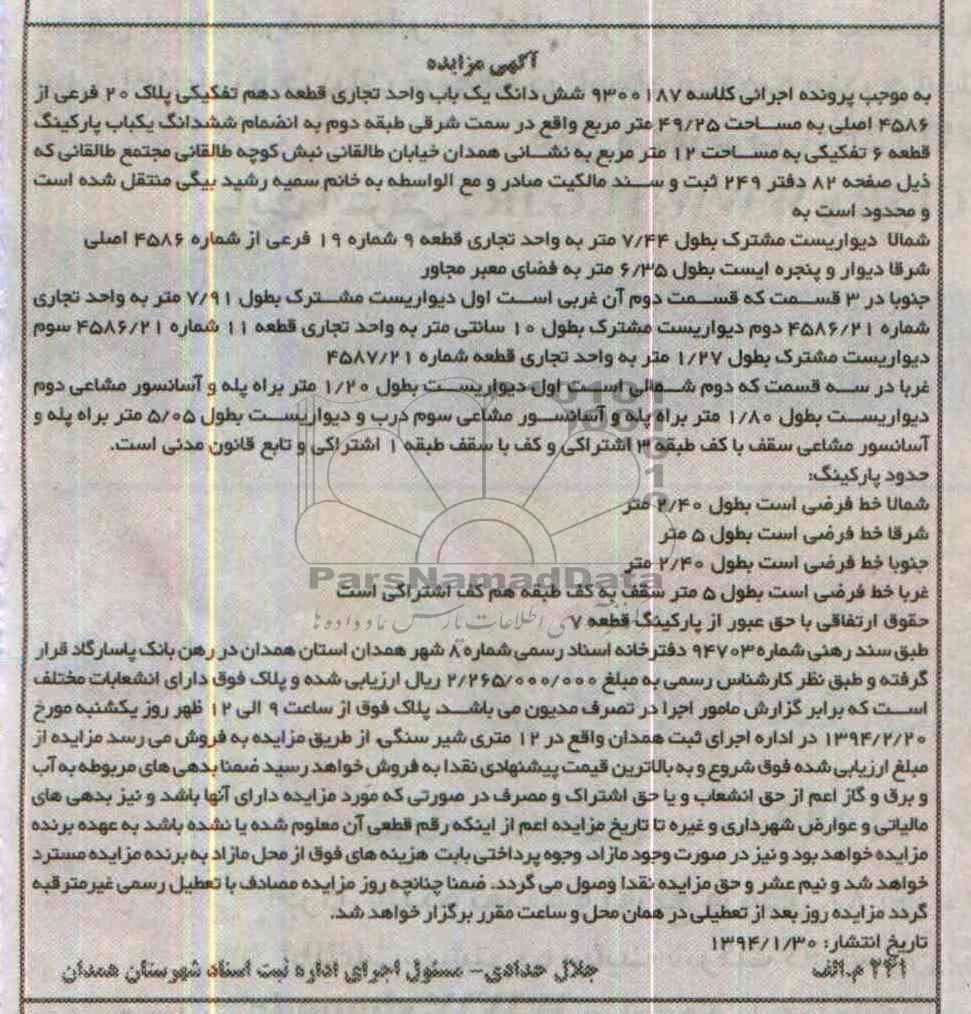 آگهی مزایده
به موجب پرونده اجرائی کلاسه ۹۳۰۰۱۸۷ شش دانگ یک باب واحد تجاری قطعه دهم تفکیکی پلاک ۲۰ فرعی از
۴۵۸۶ اصلی به مساحت ۴۹/۲۵ متر مربع واقع در سمت شرقی طبقه دوم به انضمام ششدانگ یکباب پارکینگ
قطعه ۶ تفکیکی به مساحت ۱۲ متر مربع به نشانی همدان خیابان طالقانی نبش کوچه طالقانی مجتمع طالقانی که
ذیل صفحه ۸۲ دفتر ۲۴۹ ثبت و سند مالکیت صادر و مع الواسطه به خانم سمیه رشید بیگی منتقل شده است
و محدود است به
شمالا دیواریست مشترک بطول ۷/۴۴ متر به واحد تجاری قطعه ۹ شماره ۱۹ فرعی از شماره ۴۵۸۶ اصلی
شرقا دیوار و پنجره ایست بطول ۶/۳۵ متر به فضای معبر مجاور
جنوبا در ۳ قسمت که قسمت دوم آن غربی است اول دیواریست مشترک بطول ۷/۹۱ متر به واحد تجاری
شماره ۴۵۸۶/۲۱ دوم دیواریست مشترک بطول ۱۰ سانتی متر به واحد تجاری قطعه ۱۱ شماره ۴۵۸۶/۲۱ سوم
دیواریست مشترک بطول ۱/۲۷ متر به واحد تجاری قطعه شماره ۴۵۸۷/۲۱
غربا در سه قسمت که دوم شمالی است اول دیواریست بطول ۱/۲۰ متر براه پله و آسانسور مشاعی دوم
دیواریست بطول ۱/۸۰ متر براه پله و آسانسور مشاعی سوم درب و دیواریست بطول ۵/۰۵ متر براه پله و
آسانسور مشاعی سقف با کف طبقه ۳ اشتراکی و کف با سقف طبقه ۱ اشتراکی و تابع قانون مدنی است.
حدود پارکینگ:
شمالا خط فرضی است بطول ۲/۴۰ متر
شرقا خط فرضی است بطول ۵ متر
جنوبا خط فرضی است بطول ۲/۴۰ متر
ParsNamadData
غربا خط فرضی است بطول ۵ متر سقف به کف طبقه هم کف اشتراکی است
حقوق ارتفاقی با حق عبور از پارکینگ قطعه ۷
طبق سند رهنی شماره ۹۴۷۰۳ دفترخانه اسناد رسمی شماره ۸ شهر همدان استان همدان در رهن بانک پاسارگاد قرار
گرفته و طبق نظر کارشناس رسمی به مبلغ ۲/۲۶۵/۰۰۰/۰۰۰ ریال ارزیابی شده و پلاک فوق دارای انشعابات مختلف
است که برابر گزارش مامور اجرا در تصرف مدیون می باشد. پلاک فوق از ساعت ۹ الی ۱۲ ظهر روز یکشنبه مورخ
۱۳۹۴/۲/۲۰ در اداره اجرای ثبت همدان واقع در ۱۲ متری شیر سنگی، از طریق مزایده به فروش می رسد مزایده از
مبلغ ارزیابی شده فوق شروع و به بالاترین قیمت پیشنهادی نقدا به فروش خواهد رسید ضمنا بدهی های مربوطه به آب
و برق و گاز اعم از حق انشعاب و یا حق اشتراک و مصرف در صورتی که مورد مزایده دارای آنها باشد و نیز بدهی های
مالیاتی و عوارض شهرداری و غیره تا تاریخ مزایده اعم از اینکه رقم قطعی آن معلوم شده یا نشده باشد به عهده برنده
مزایده خواهد بود و نیز در صورت وجود مازاد، وجوه پرداختی بابت هزینه های فوق از محل مازاد به برنده مزایده مسترد
خواهد شد و نیم عشر و حق مزایده نقدا وصول می گردد. ضمنا چنانچه روز مزایده مصادف با تعطیل رسمی غیرمترقبه
گردد مزایده روز بعد از تعطیلی در همان محل و ساعت مقرر برگزار خواهد شد.
تاریخ انتشار: ۱۳۹۴/۱/۳۰
۲۲۱ م.الف
جلال حدادی- مسئول اجرای اداره ثبت اسناد شهرستان همدان